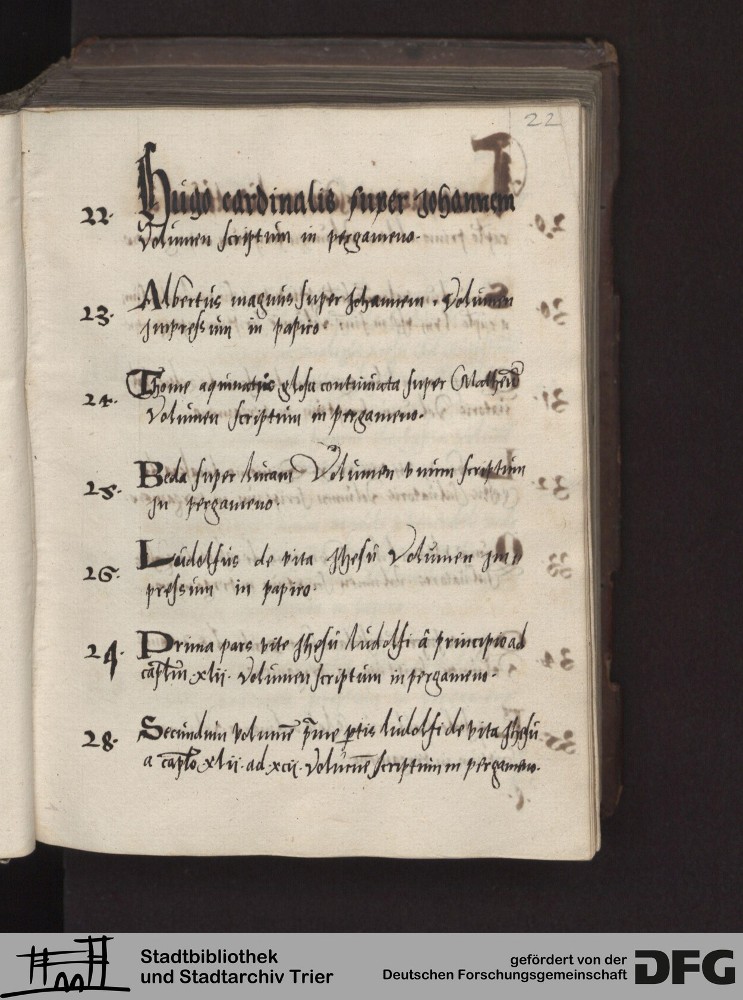 22
22. Hugo cardinalis super Johannem
Volumen scriptum in pergameno.
23. Albertus magnus super Johannem. Volumen
Impressum in papiro.
24. Thome aquinatis glosa continuata super Matheū
Volumen scriptum in pergameno.
25. Beda super lucam Volumen vnum scriptum
In pergameno.
26. Ludolfus de vita Jhesu Volumen im
pressum in papiro.
27. Prima pars vite Jhesu ludolfi a principio ad
captm xlii. Volumen scriptum in pergameno.
28. Secundum volumē prime ptis ludolfi de vita Jhesu
a capto xlii. ad xcii. Volumē scriptum in pergameno.
Stadtbibliothek
und Stadtarchiv Trier
gefördert von der
Deutschen Forschungsgemeinschaft
DFG